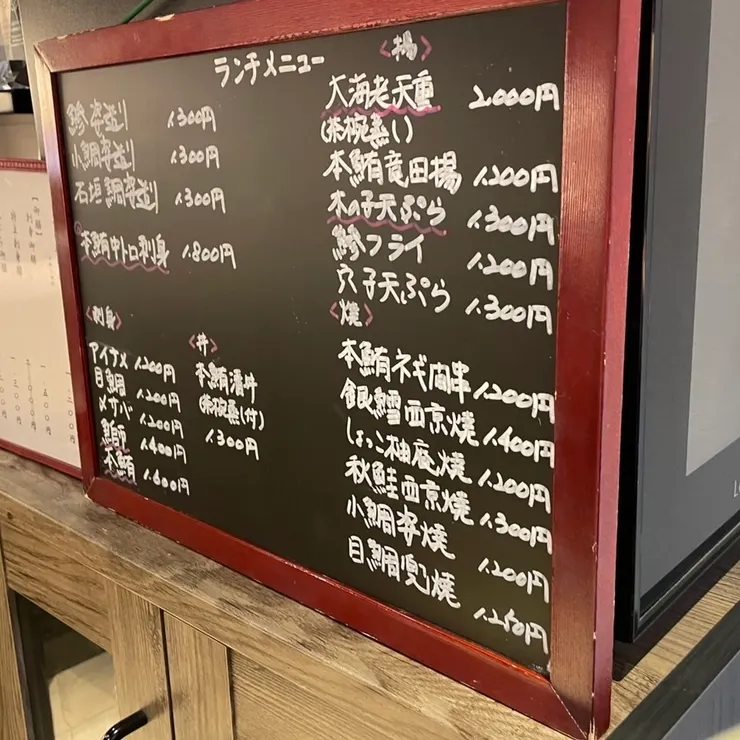 ランチメニュー
鯵姿造り 1.300円
小鯛姿造り 1.300円
石垣鯛姿造り 1.300円
本鮪中トロ刺身 1.800円
〈刺身〉
アイナメ 1.200円
目鯛 1.200円
〆サバ 1.200円
鰤 1.400円
本鮪 1.600円
〈丼〉
本鮪漬丼
(茶碗蒸し付)
1.300円
〈揚〉
大海老天重 2.000円
(茶碗蒸し)
本鮪竜田揚 1.200円
木の子天ぷら 1.300円
鯵フライ 1.200円
穴子天ぷら 1.300円
〈焼〉
本鮪ネギ間串 1.200円
銀鱈西京焼 1.400円
しょっこ柚庵焼 1.200円
秋鮭西京焼 1.300円
小鯛姿焼 1.200円
目鯛兜焼 1.250円